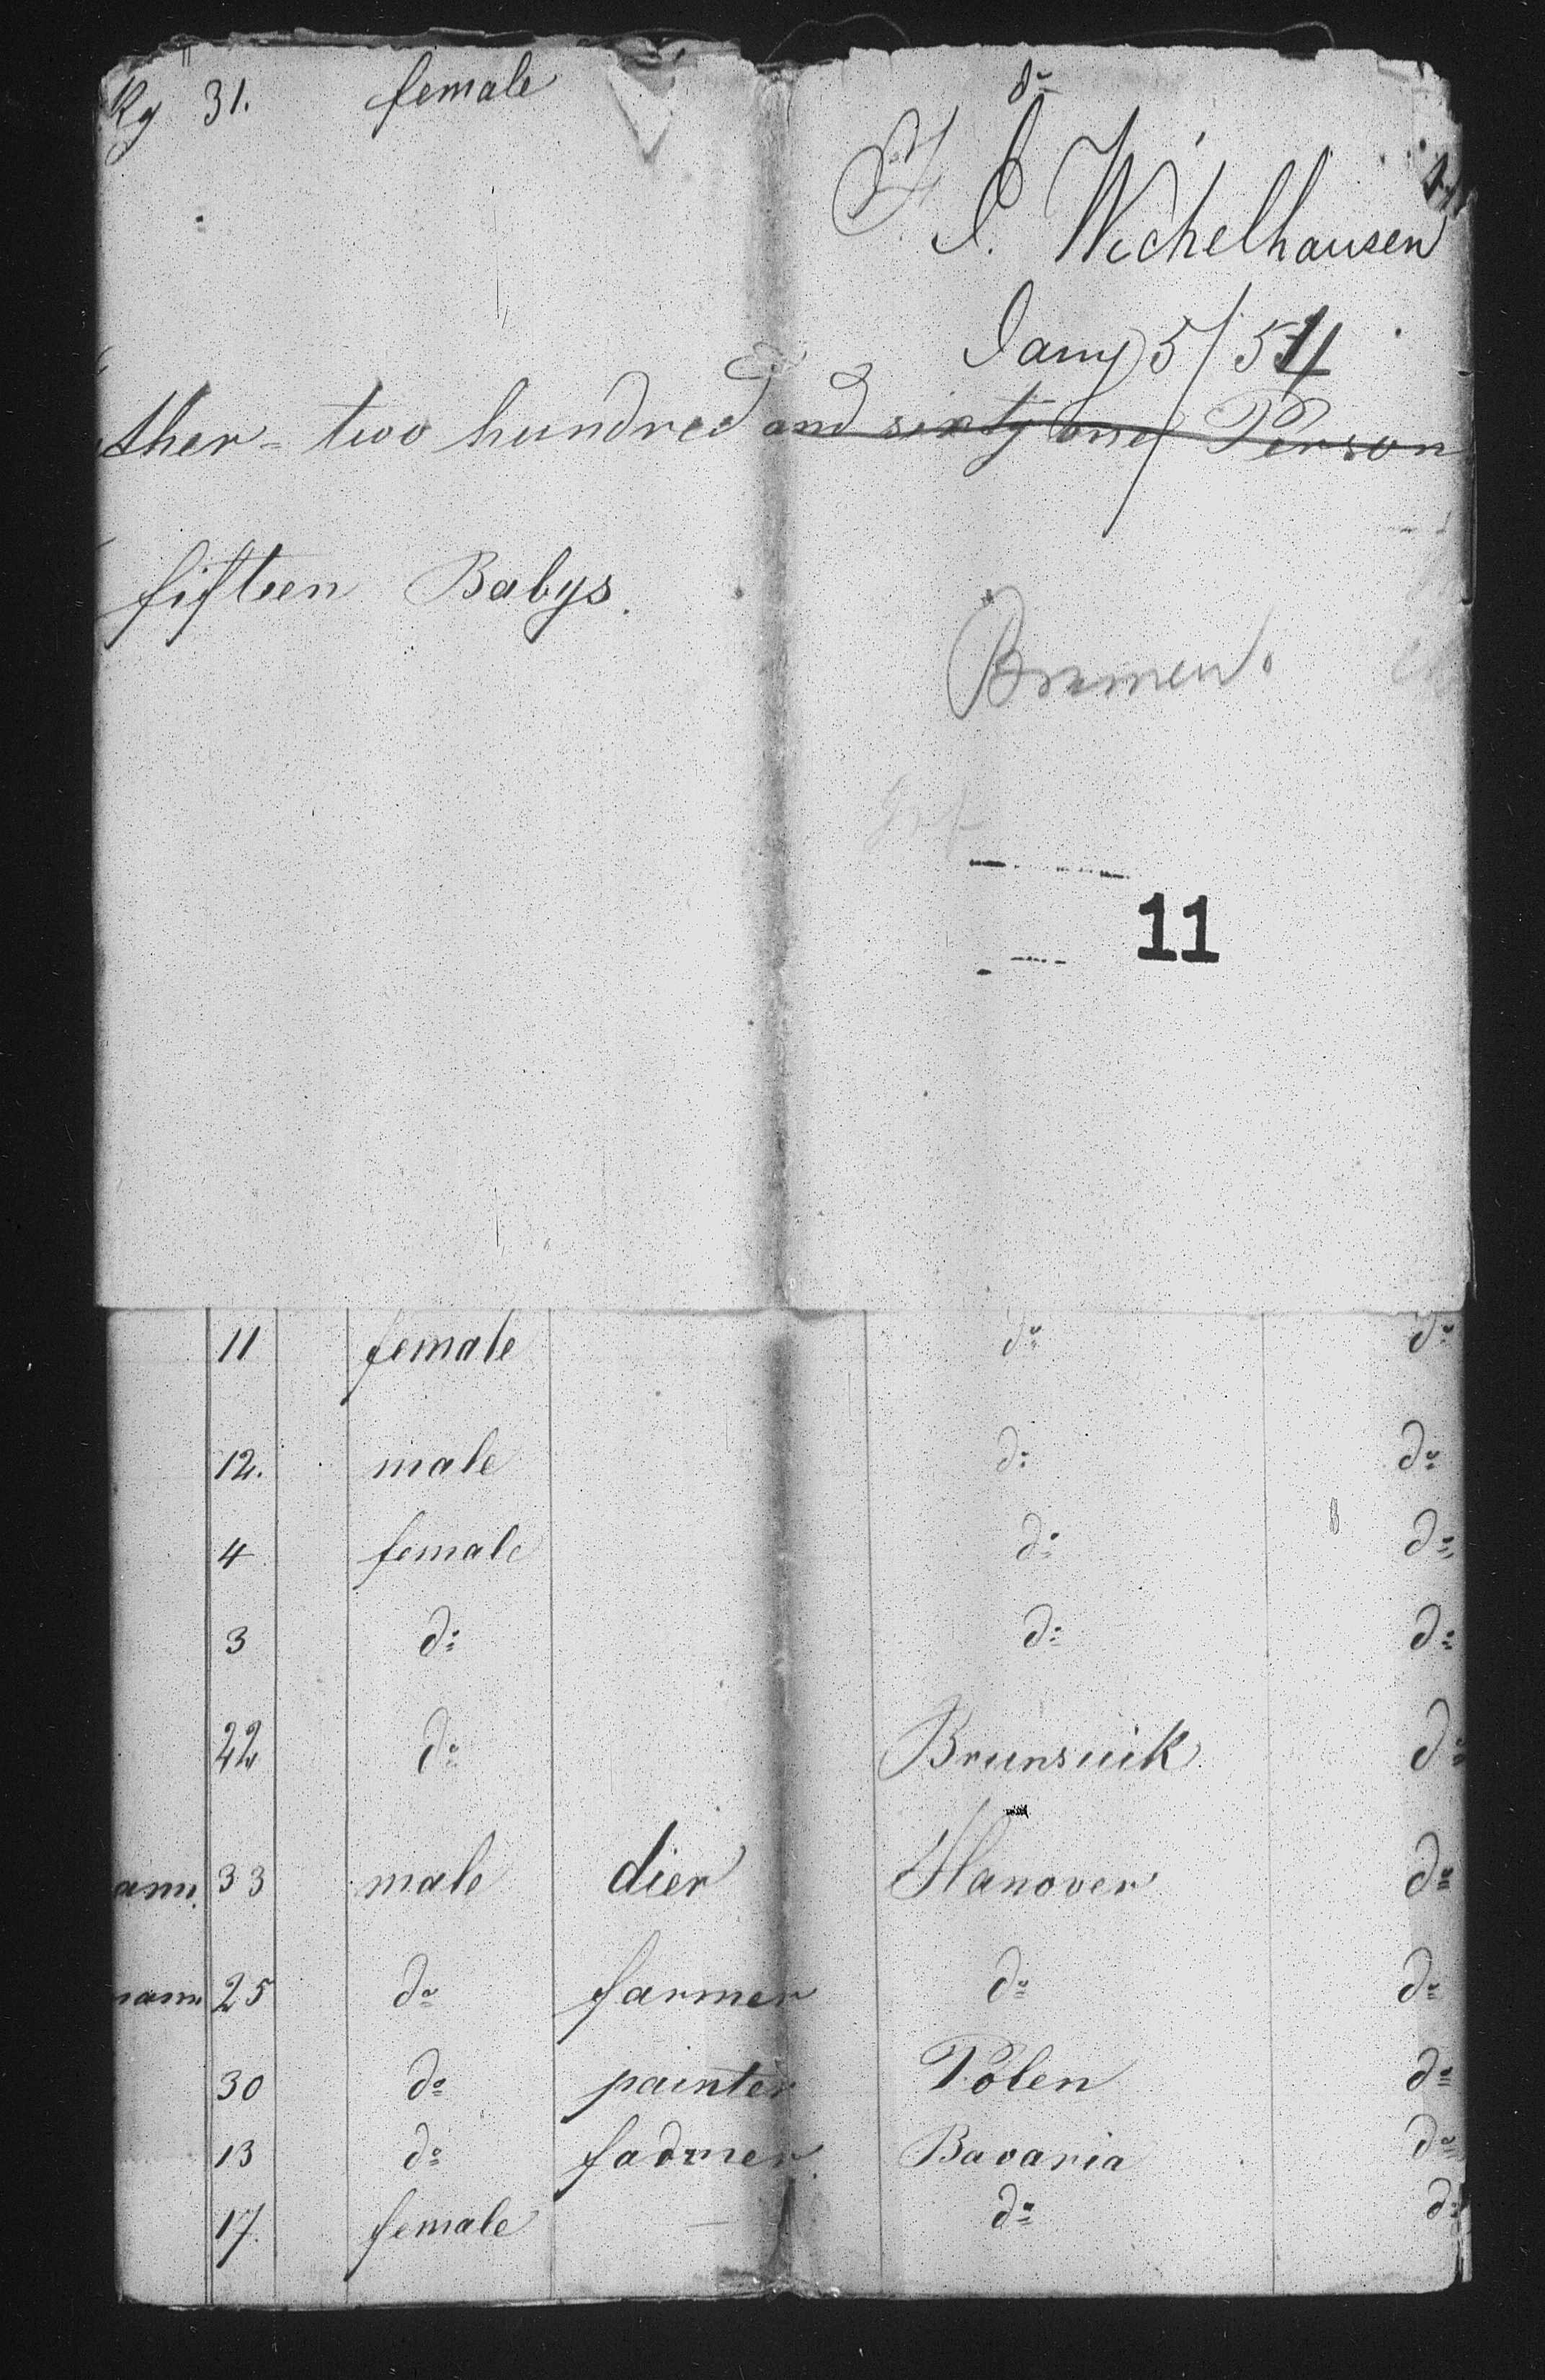 31. female do
F. J. Wichelhausen
Jany 5/54
ther = two hundred and sixty one Person
fifteen Babys.
Bremen.
11
11 female do do
12. male do do
4 female do do
3 do do do
22 do Brunsuik do
ann. 33 male dier Hanover do
mann 25 do farmer do do
30 do painter Polen do
13 do fadmer. Bavaria do
17. female — do do